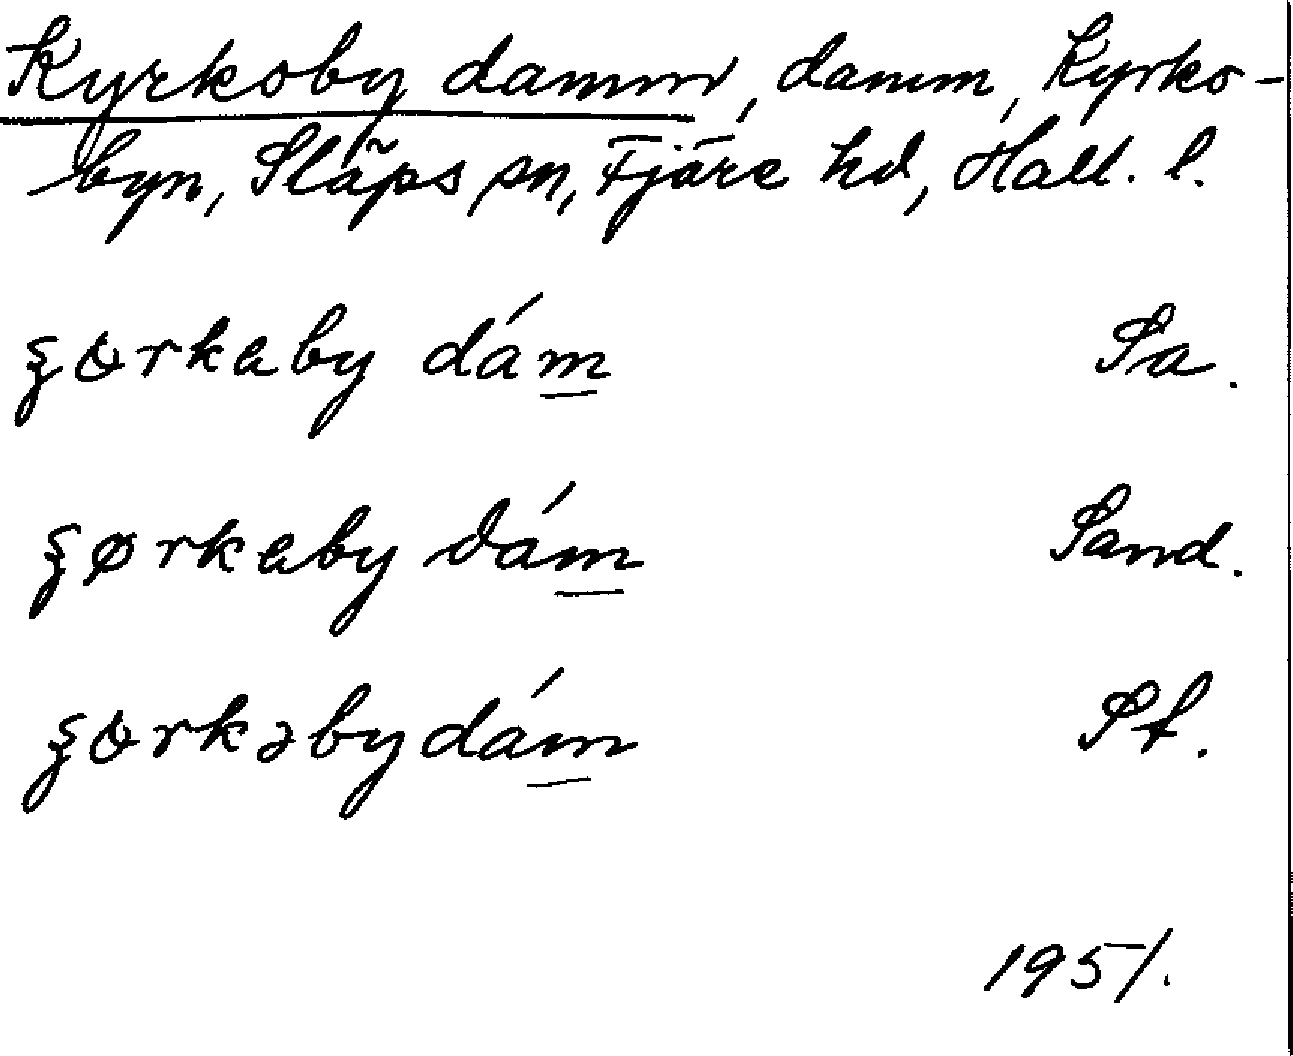 Kyrkoby damm, damm, Kyrko-
byn, Släps sn, Fjäre hd, Hall. l.
ʂɵrkaby dám̲ Sa.
ʂørkaby dám̲ Sand.
ʂɵrkəbydám̲ St.
1951.